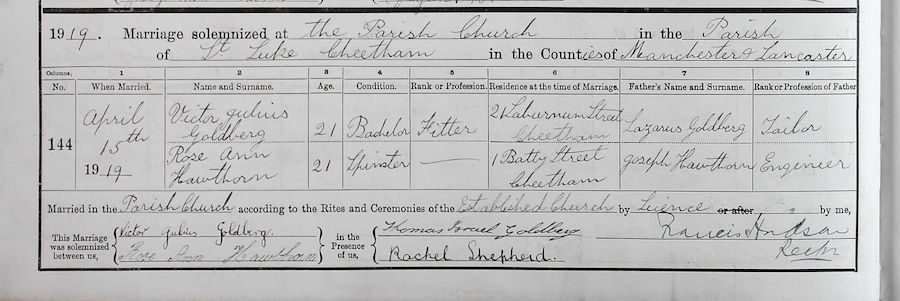 1919. Marriage solemnized at the Parish Church in the Parish
of St. Luke Cheetham in the Counties of Manchester & Lancaster
Columns; 1 2 3 4 5 6 7 8
No. When Married. Name and Surname. Age. Condition. Rank or Profession. Residence at the time of Marriage. Father's Name and Surname. Rank or Profession of Father
144 April 15th 1919
Victor Julius Goldberg 21 Bachelor Fitter 21 Laburnum Street Cheetham Lazarus Goldberg Tailor
Rose Ann Hawthorn 21 Spinster — 1 Batty Street Cheetham Joseph Hawthorn Engineer
Married in the Parish Church according to the Rites and Ceremonies of the Established Church by Licence or after by me,
This Marriage was solemnized between us, Victor Julius Goldberg. Rose Ann Hawthorn in the Presence of us, Thomas Israel Goldberg Rachel Shepherd. Francis Hudson
Rector